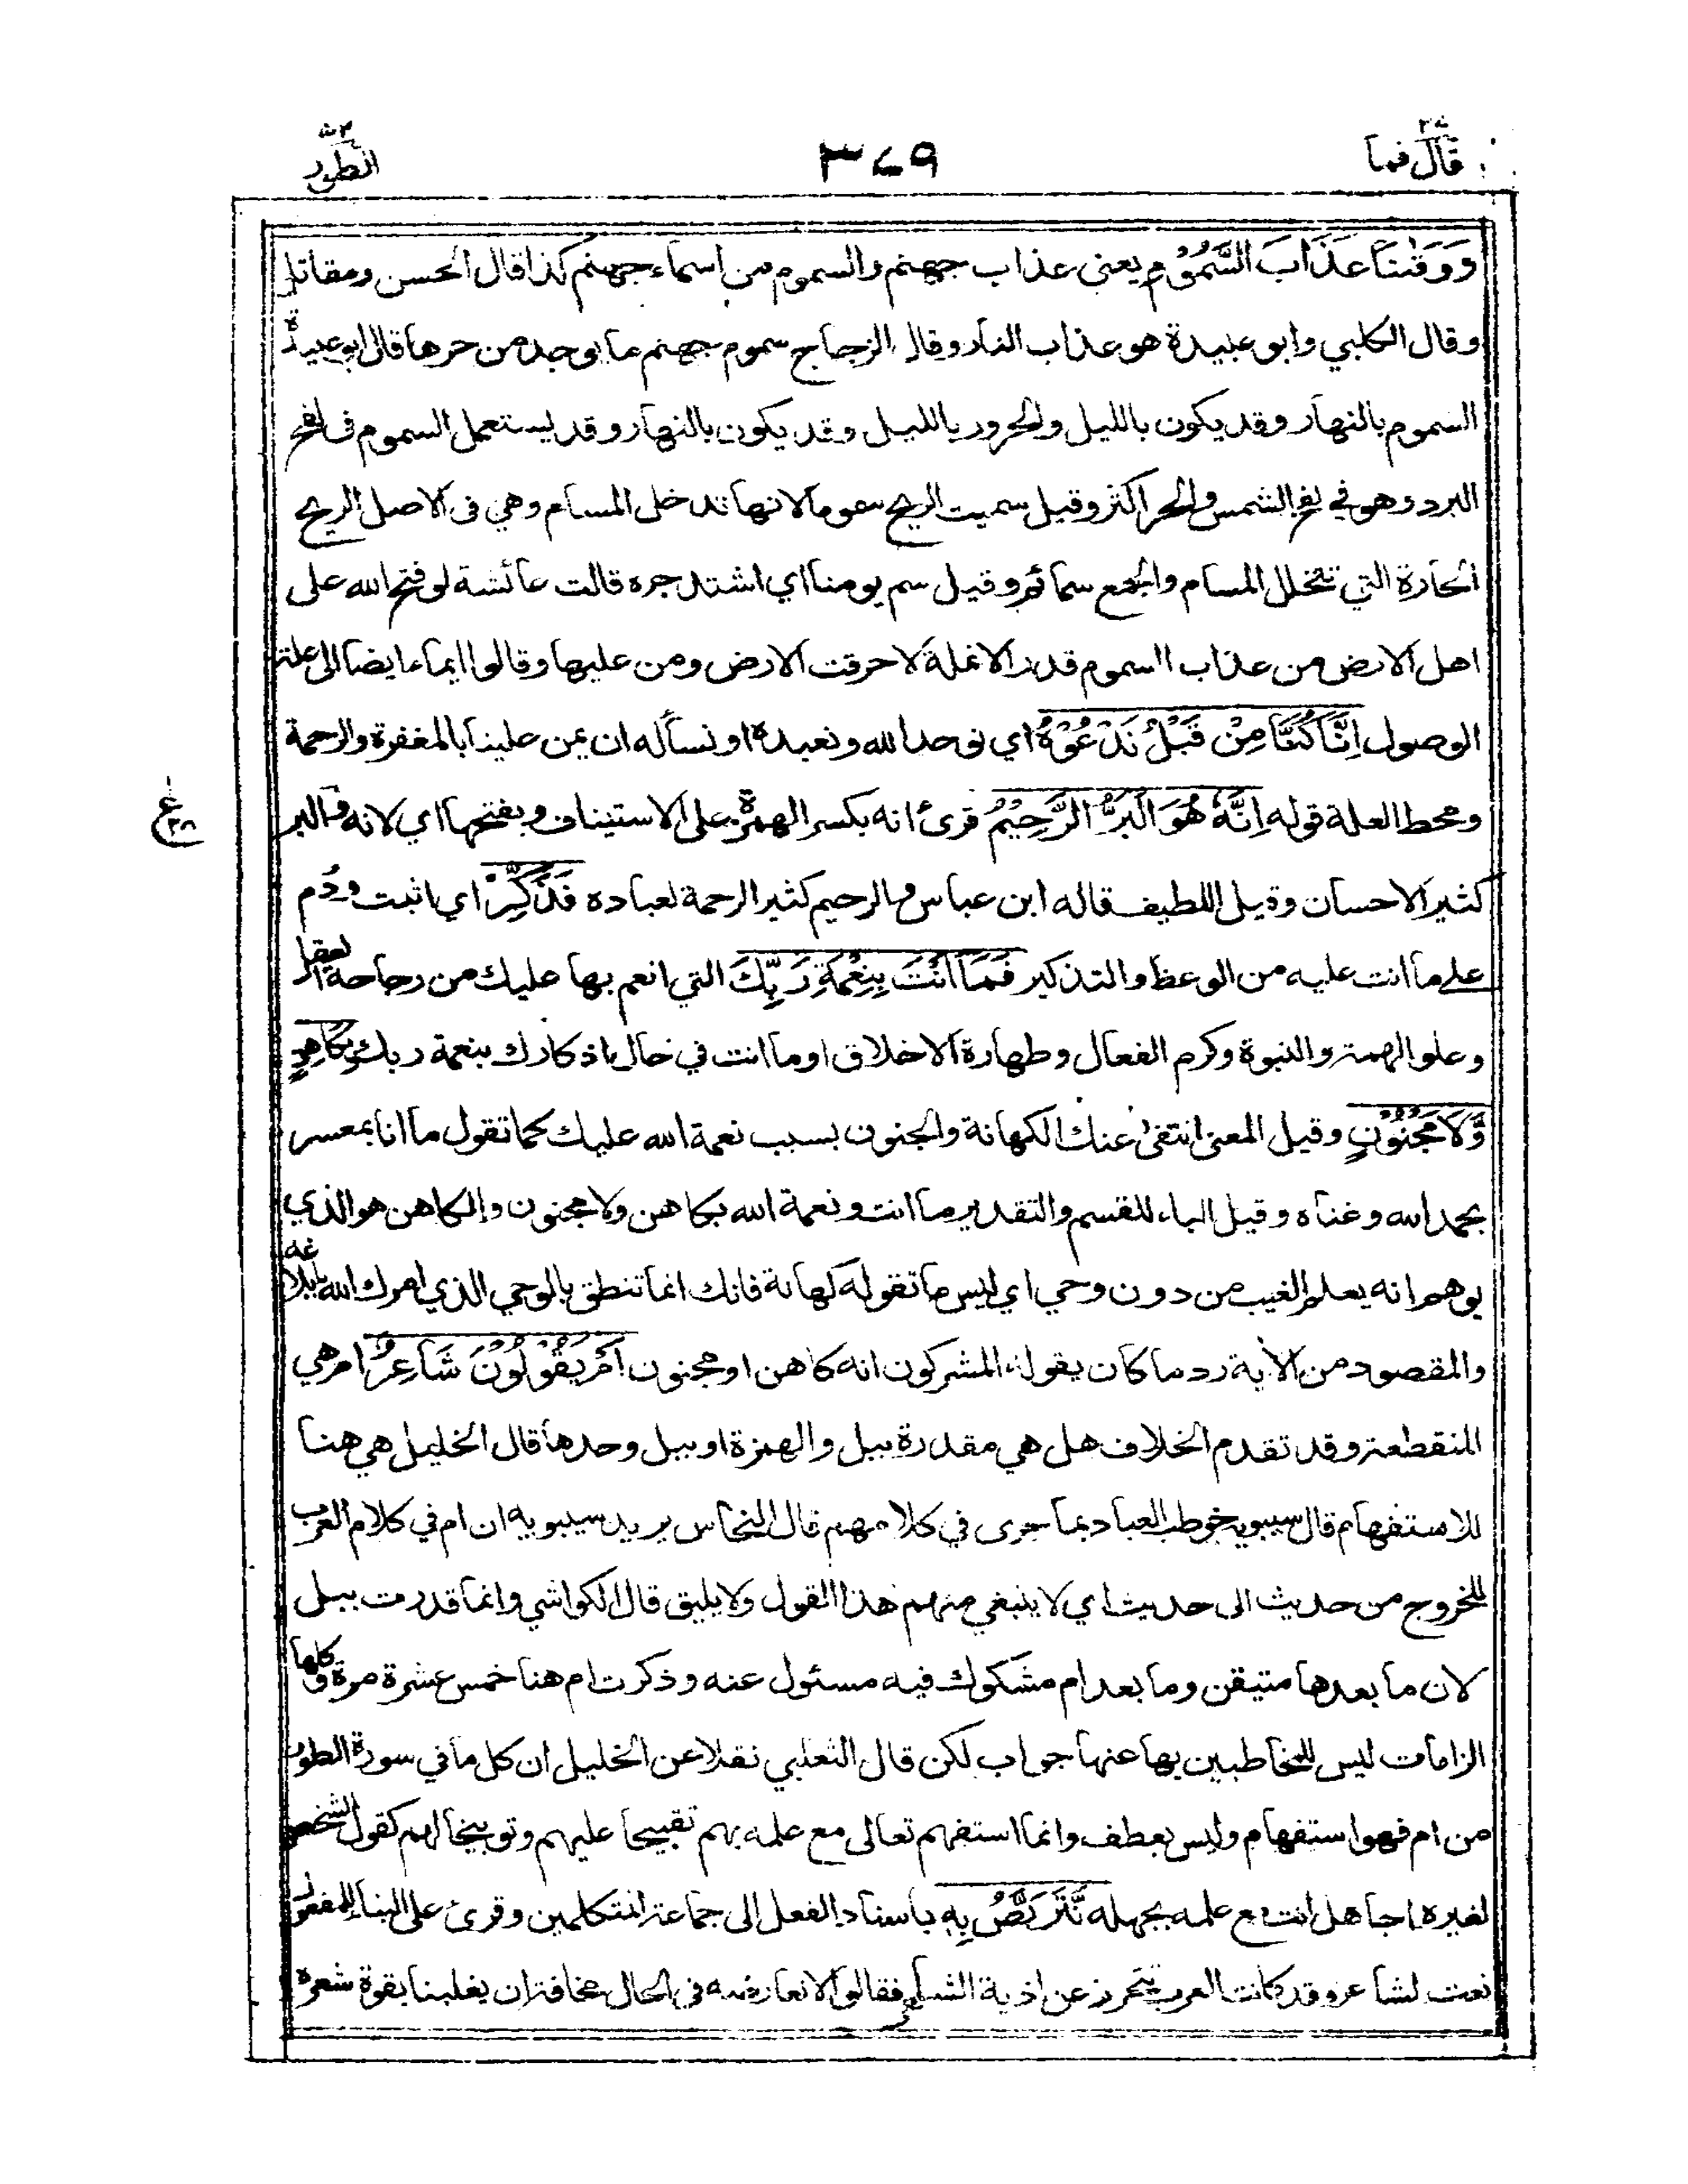 قال فما
٣٧٩
الطور
وَوَقٰىنَا عَذَابَ السَّمُوْمِ يعنى عذاب جهنم والسموم من اسماء جهنم كذا قال الحسن ومقاتل
وقال الكلبي وابو عبيدة هو عذاب النار وقال الزجاج سموم جهنم ما يوجد من حرها قال ابو عبيدة
السموم بالنهار وقد يكون بالليل والحرور بالليل وقد يكون بالنهار وقد يستعمل السموم فى لفح
البرد وهو في لفح الشمس والحر اكثر وقيل سميت الريح سموما لانها تدخل المسام وهي فى الاصل الريح
الحارة التي تتخلل المسام والجمع سمائم وقيل سم يومنا اي اشتد حره قالت عائشة لو فتح الله على
اهل الارض من عذاب السموم قدر الانملة لاحرقت الارض ومن عليها وقالوا ايماء ايضا الى علة
الوصول اِنَّا كُنَّا مِنْ قَبْلُ نَدْعُوْهُ اي نوحد الله ونعبده او نسأله ان يمن علينا بالمغفرة والرحمة
ومحط العلة قوله اِنَّهٗ هُوَ الْبَرُّ الرَّحِيْمُ قرئ انه بكسر الهمزة على الاستيناف وبفتحها اي لانه والبر
كثير الاحسان وقيل اللطيف قاله ابن عباس والرحيم كثير الرحمة لعباده فَذَكِّرْ اي اثبت ودُم
على ما انت عليه من الوعظ والتذكير فَمَا اَنْتَ بِنِعْمَةِ رَبِّكَ التي انعم بها عليك من رجاحة العقل
وعلو الهمة والنبوة وكرم الفعال وطهارة الاخلاق او ما انت في حال اذكارك بنعمة ربك بِكَاهِنٍ
وَّلَا مَجْنُوْنٍ وقيل المعنى انتفى عنك الكهانة والجنون بسبب نعمة الله عليك كما تقول ما انا بمعسر
بحمد الله وغناه وقيل الباء للقسم والتقدير ما انت ونعمة الله بكاهن ولا مجنون والكاهن هو الذي
يوهم انه يعلم الغيب من دون وحي اي ليس ما تقوله كهانة فانك انما تنطق بالوحي الذي امرك الله بابلاغه
والمقصود من الآية رد ما كان يقوله المشركون انه كاهن او مجنون اَمْ يَقُوْلُوْنَ شَاعِرٌ ام هي
المنقطعة وقد تقدم الخلاف هل هي مقدرة ببل والهمزة او ببل وحدها قال الخليل هي هنا
للاستفهام قال سيبويه خوطب العباد بما جرى في كلامهم قال النحاس يريد سيبويه ان ام في كلام العرب
للخروج من حديث الى حديث اي لا ينبغي منهم هذا القول ولا يليق قال الكواشي وانما قدرت ببل
لان ما بعدها متيقن وما بعد ام مشكوك فيه مسئول عنه وذكرت ام هنا خمس عشرة مرة وكلها
الزامات ليس للمخاطبين بها عنها جواب لكن قال الثعلبي نقلا عن الخليل ان كل ما في سورة الطور
من ام فهو استفهام وليس بعطف وانما استفهم تعالى مع علمه بهم تقبيحا عليهم وتوبيخا لهم كقول الشخص
لغيره اجاهل انت مع علمه بجهله نَّتَرَبَّصُ بِهٖ باسناد الفعل الى جماعة المتكلمين وقرئ على البناء للمفعول
نعت لشاعر وقد كانت العرب تتحرز عن اذية الشاعر فقالوا لا نعارضه في الحال مخافة ان يغلبنا بقوة شعره